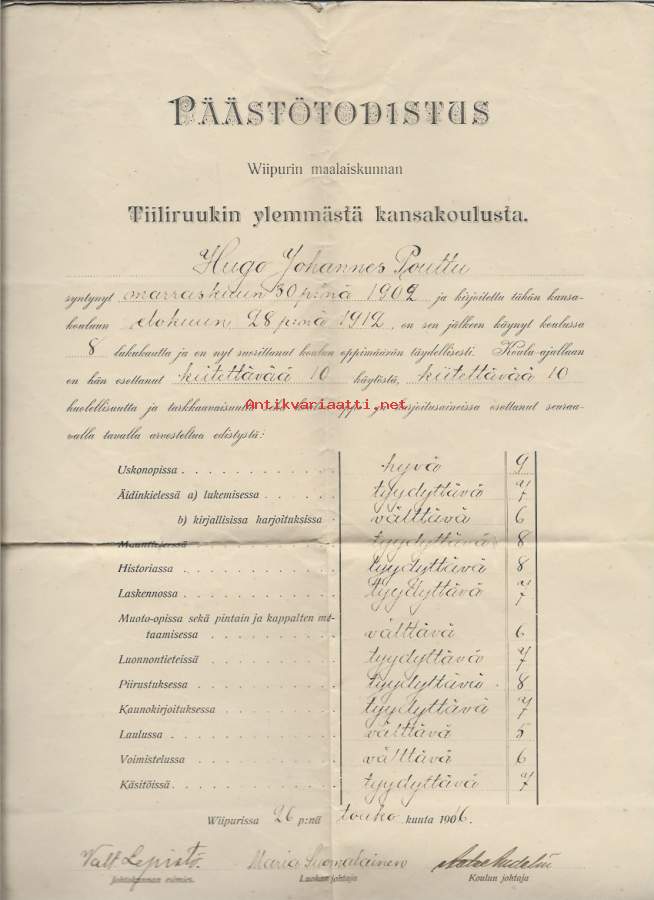 PÄÄSTÖTODISTUS
Wiipurin maalaiskunnan
Tiiliruukin ylemmästä kansakoulusta.
Hugo Johannes Pouttu
syntynyt marraskuun 30 p:nä 1902 ja kirjoitettu tähän kansa-
kouluun elokuun 28 p:nä 1912, on sen jälkeen käynyt koulussa
8 lukukautta ja on nyt suorittanut koulun oppimäärän täydellisesti. Koulu-ajallaan
on hän osottanut kiitettävää 10 käytöstä, kiitettävää 10
huolellisuutta ja tarkkaavaisuutta sekä ja kirjoitusaineissa osottanut seuraa-
Antikvariaatti.net
valla tavalla arvosteltua edistystä:
Uskonopissa hyvä 9
Äidinkielessä a) lukemisessa tyydyttävä 7
b) kirjallisissa harjoituksissa välttävä 6
Maantieteessä tyydyttävä 8
Historiassa tyydyttävä 8
Laskennossa tyydyttävä 7
Muoto-opissa sekä pintain ja kappalten mit-
taamisessa välttävä 6
Luonnontieteissä tyydyttävä 7
Piirustuksessa tyydyttävä 8
Kaunokirjoituksessa tyydyttävä 7
Laulussa välttävä 5
Voimistelussa välttävä 6
Käsitöissä tyydyttävä 7
Wiipurissa 26 p:nä touko kuuta 1916.
Valt Lepistö. Maria Suomalainen
Johtokunnan esimies. Luokan johtaja Koulun johtaja